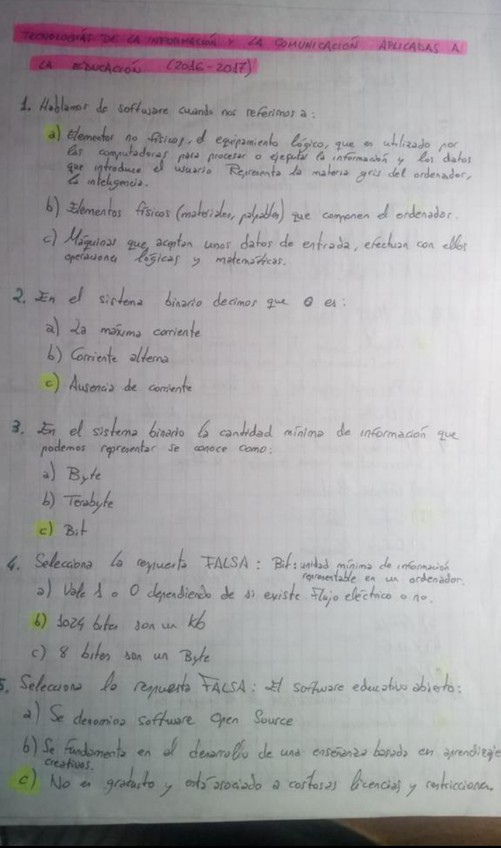 TECNOLOGÍAS DE LA INFORMACIÓN Y LA COMUNICACIÓN APLICADAS A
LA EDUCACIÓN (2016-2017)
1. Hablamos de software cuando nos referimos a:
a) Elementos no físicos, el equipamiento lógico, que es utilizado por
las computadoras para procesar o ejecutar la información y los datos
que introduce el usuario. Representa la materia gris del ordenador,
la inteligencia.
b) Elementos físicos (materiales, palpables) que componen el ordenador.
c) Máquinas que aceptan unos datos de entrada, efectuan con ellos
operaciones lógicas y matemáticas.
2. En el sistema binario decimos que 0 es:
a) La máxima corriente
b) Corriente alterna
c) Ausencia de corriente
3. En el sistema binario la cantidad mínima de información que
podemos representar se conoce como:
a) Byte
b) Terabyte
c) Bit
4. Selecciona la respuesta FALSA: Bit: unidad mínima de información
representable en un ordenador.
a) Vale 1 o 0 dependiendo de si existe flujo eléctrico o no.
b) 1024 bites son un Kb
c) 8 bites son un Byte
5. Selecciona la respuesta FALSA: El software educativo abierto:
a) Se denomina Software Open Source
b) Se fundamenta en el desarrollo de una enseñanza basada en aprendizaje
creativos.
c) No es gratuito y está asociado a costosas licencias y restricciones.